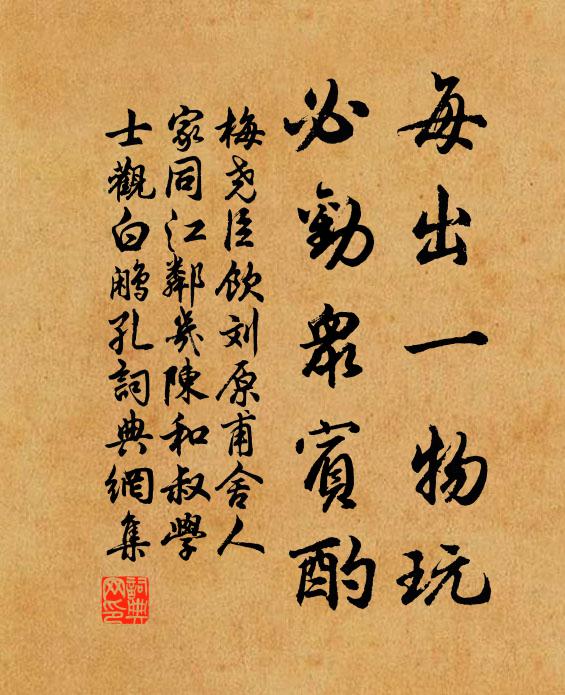 每出一物玩
必勸眾賓酌
梅尧臣飲刘原甫舍人
家同江鄰幾陳和叔學
士觀白鷴孔詞典網集
詞典
网印